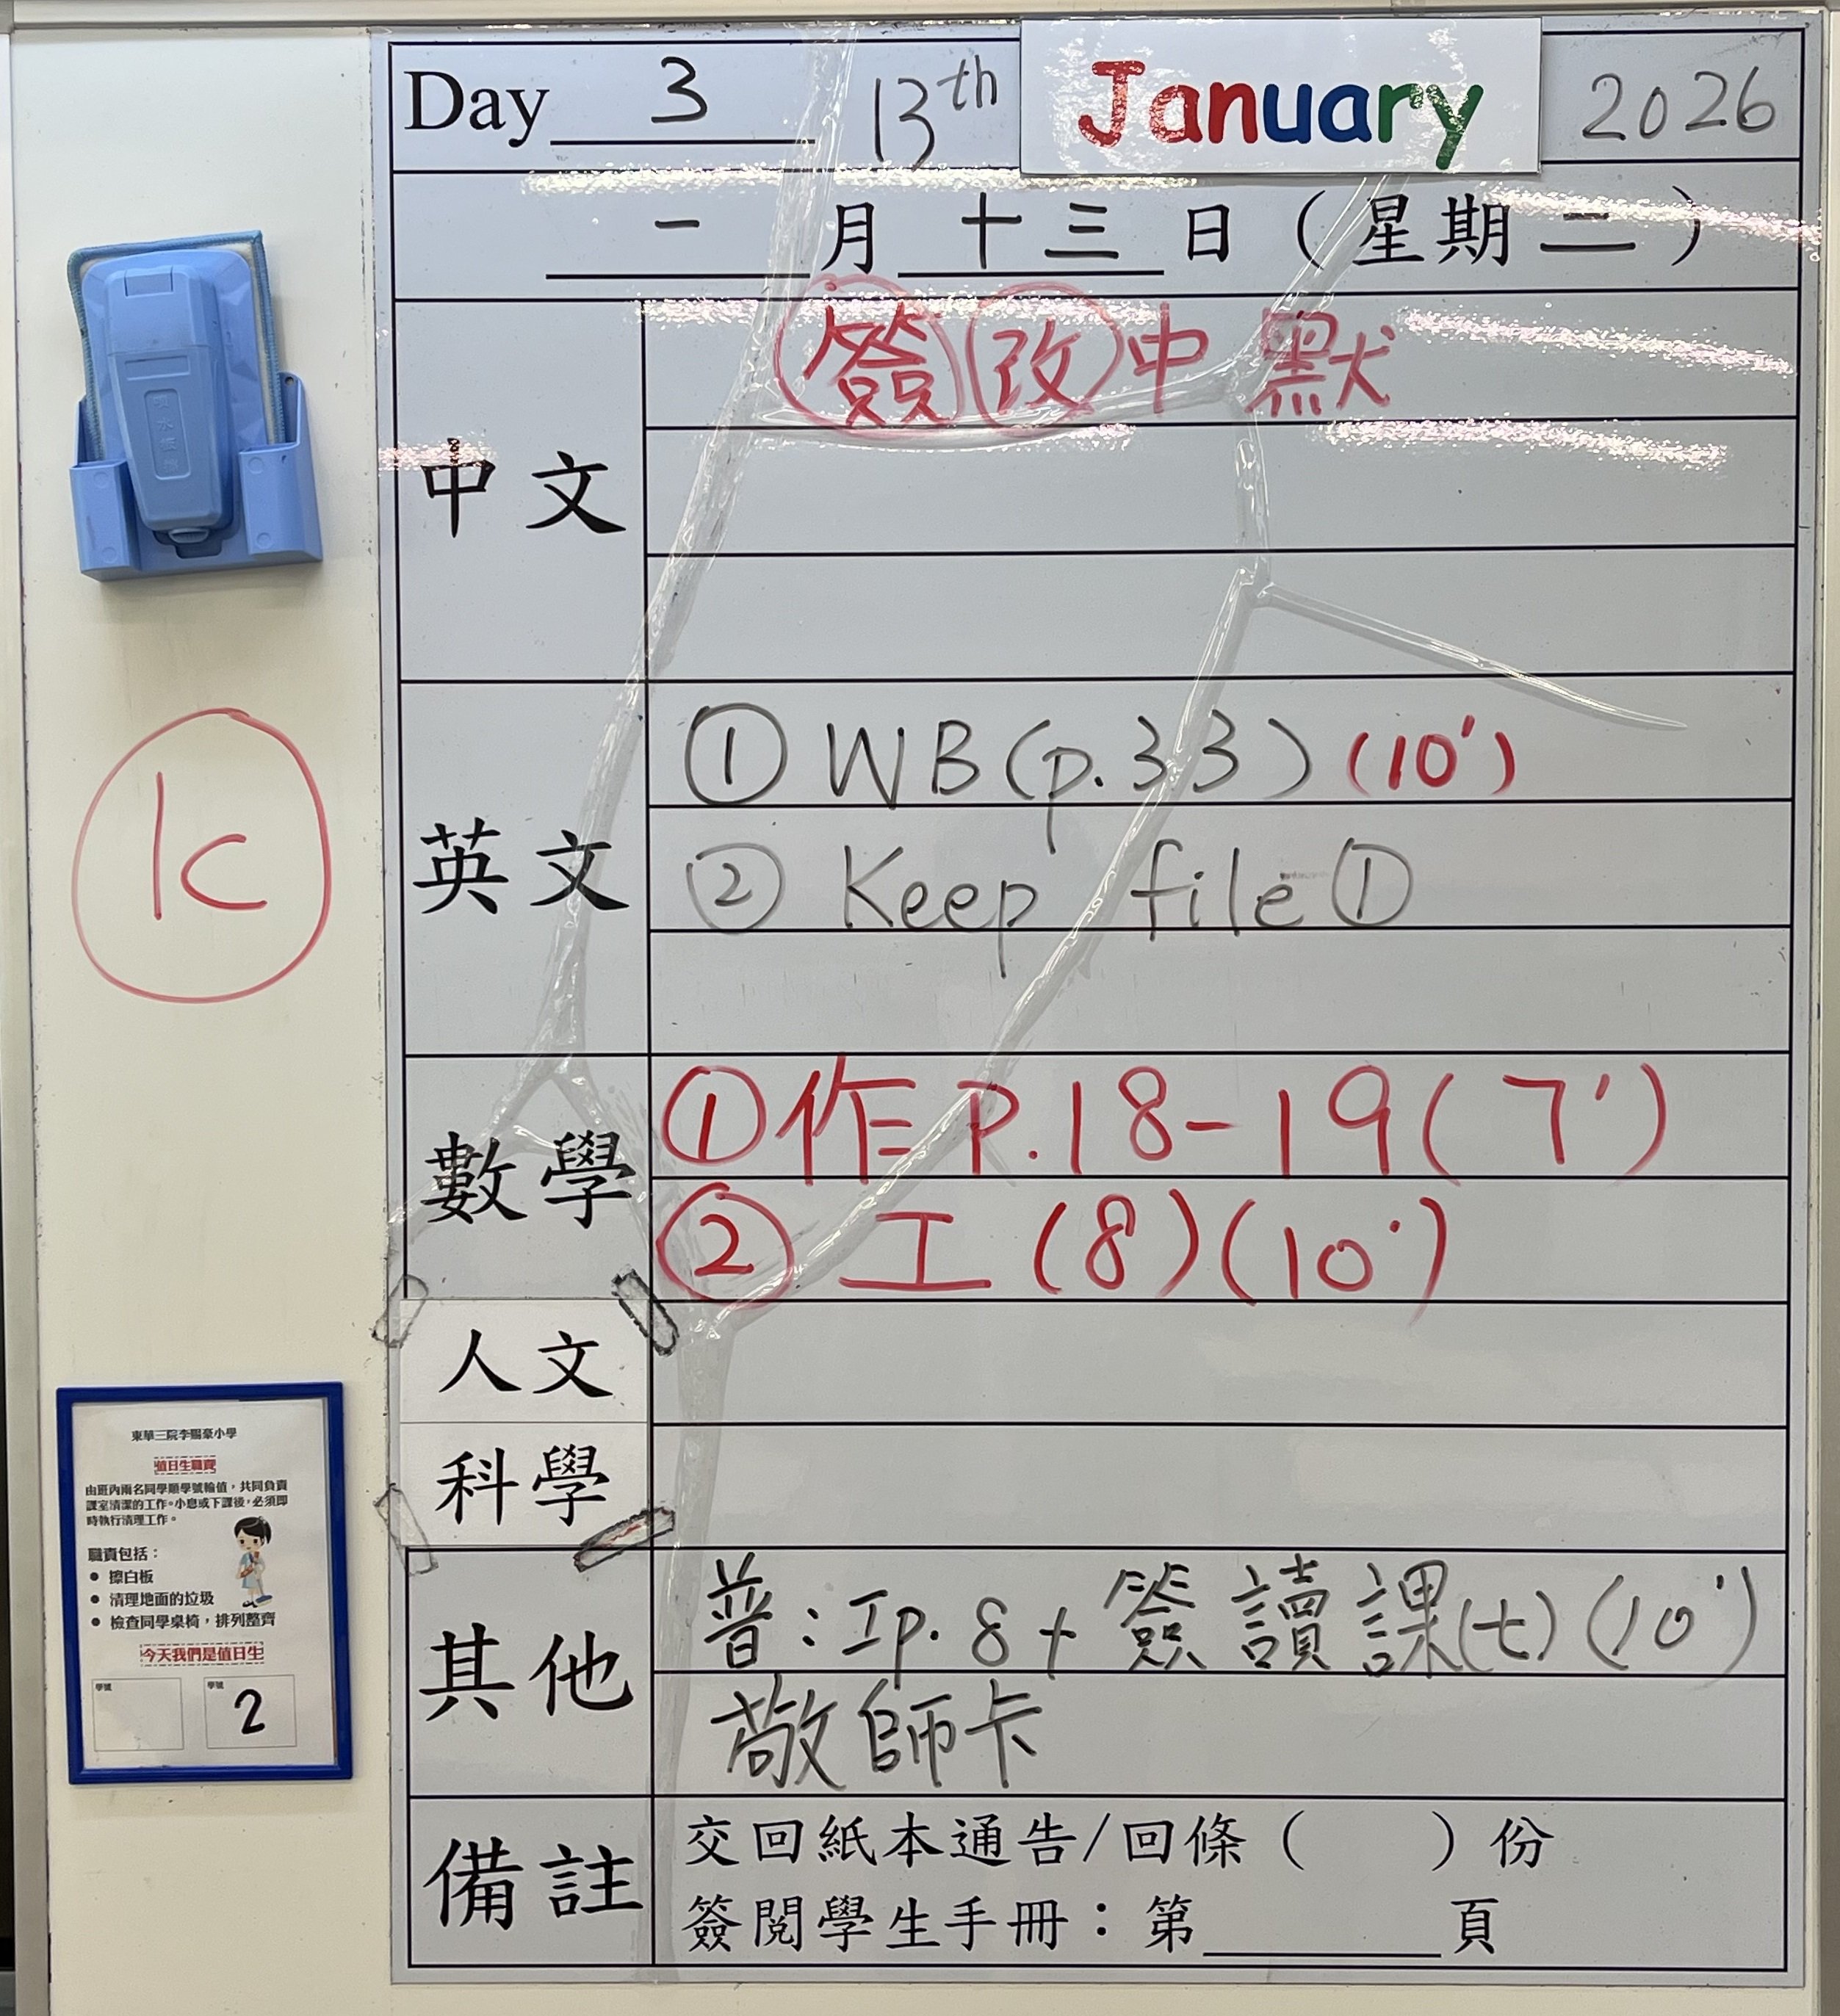 Day 3 13th January 2026
一月十三日（星期二）
中文
簽改中默
英文
① WB(p.33) (10')
② Keep file①
數學
①作P.18-19(7')
②工(8)(10')
人文
科學
其他
普:工p.8+簽讀課(七)(10')
敬師卡
備註
交回紙本通告/回條（ ）份
簽閱學生手冊：第______頁
K
東華三院李賜豪小學
值日生職責
由班內兩名同學順學號輪值，共同負責
課室清潔的工作。小息或下課後，必須即
時執行清理工作。
職責包括：
• 擦白板
• 清理地面的垃圾
• 檢查同學桌椅，排列整齊
今天我們是值日生
學號 學號
2